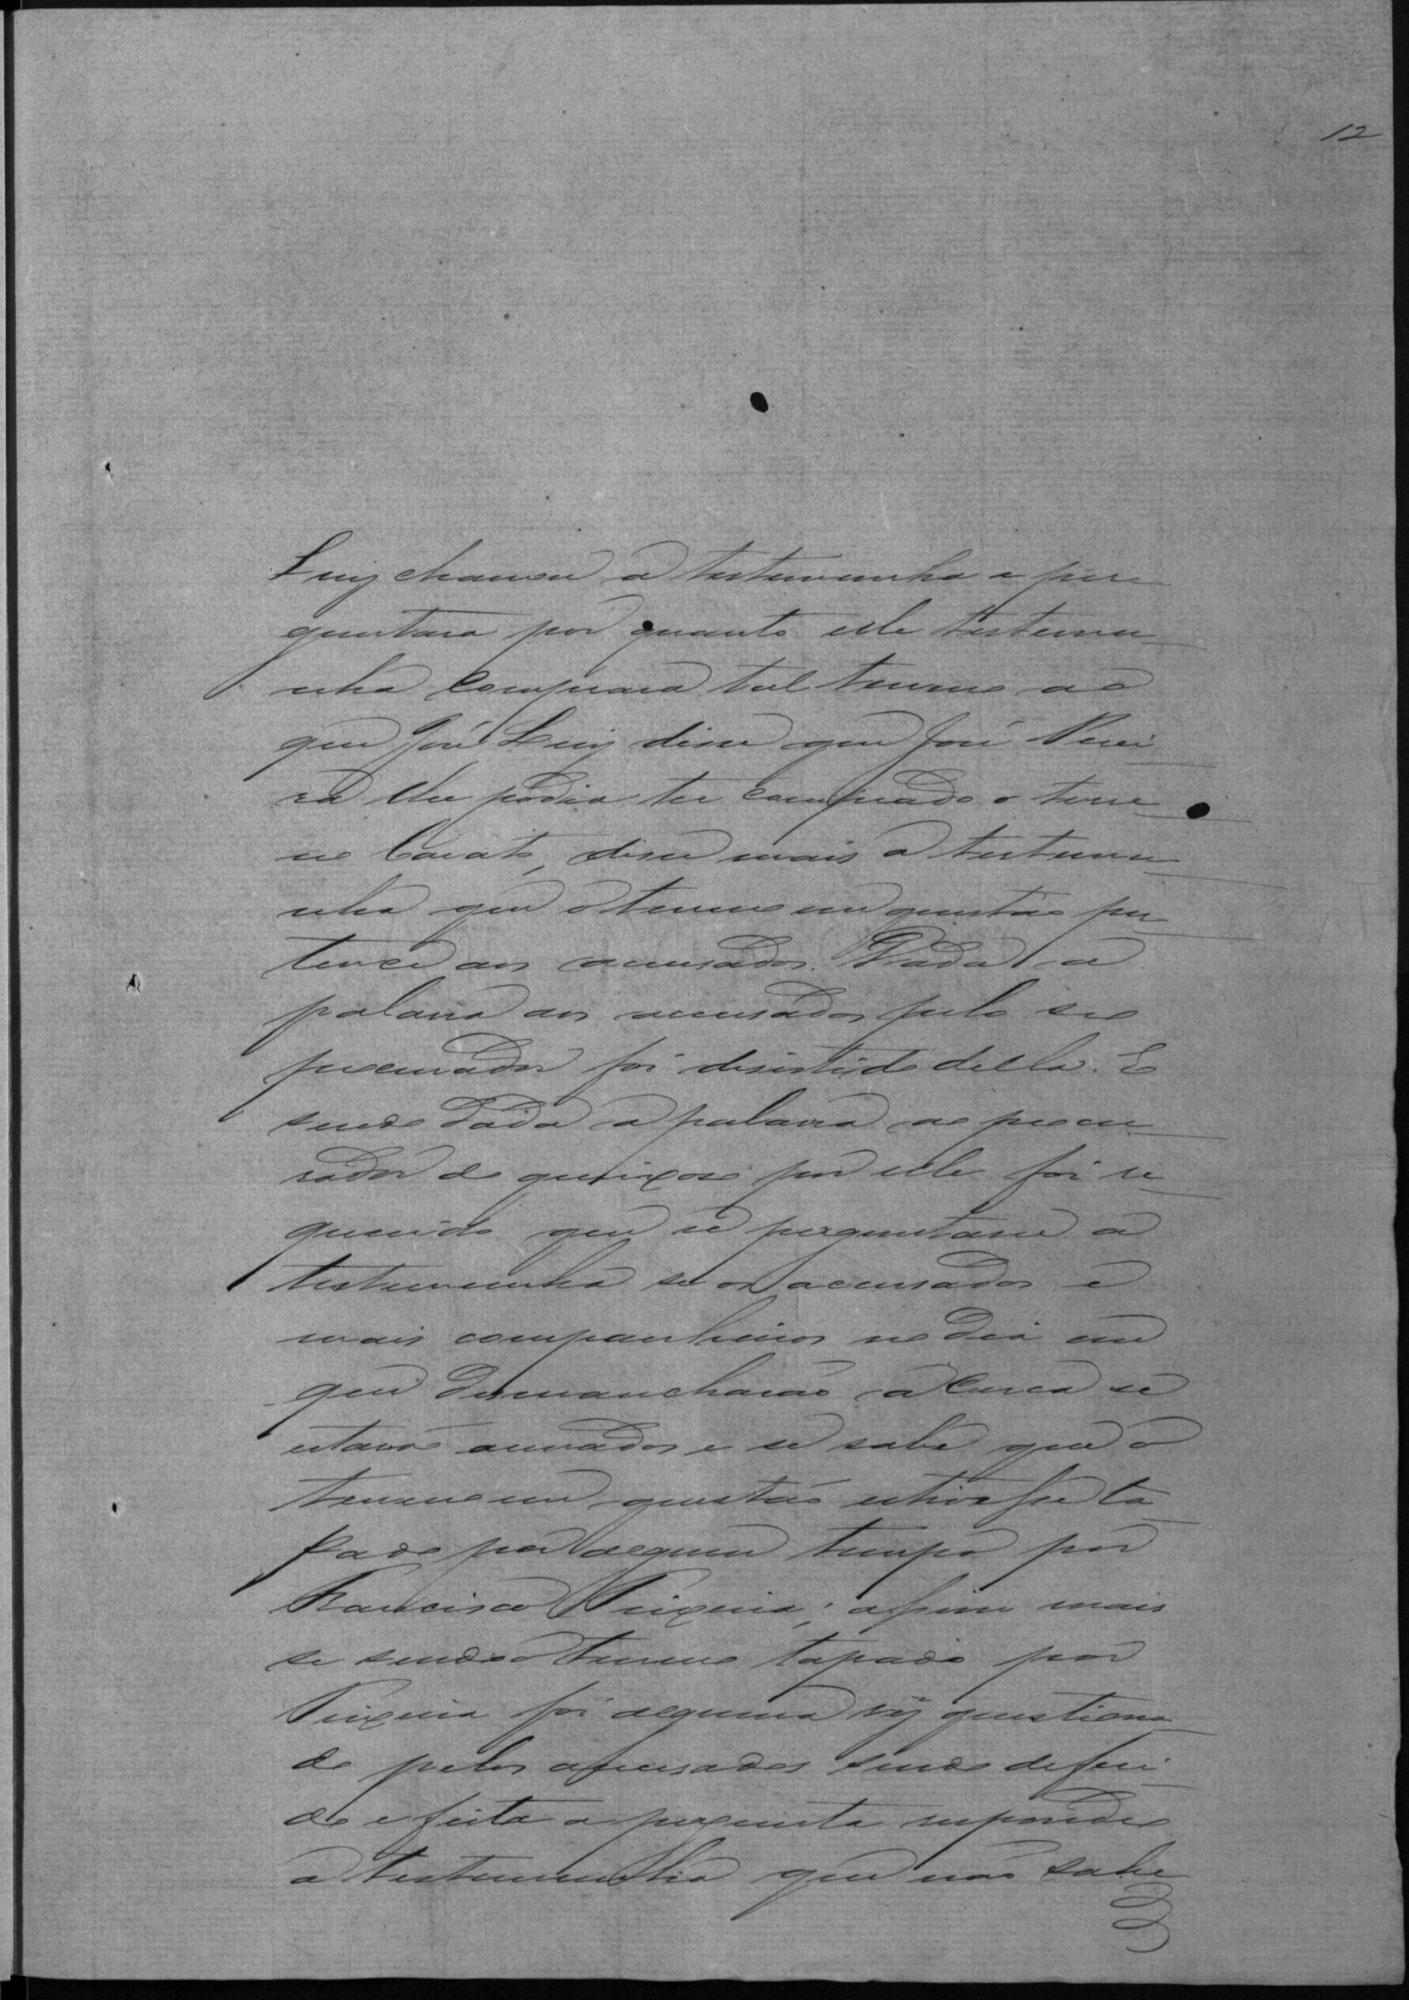 12
Luiz chamou a testemunha e per
guntara por quanto elle testemu
nha comprara tal terreno ao
que José Luiz disse que José Perei
ra lhe podia ter comprado o terre
no barato, disse mais a testemu
nha que o terreno em questão per
tence aos accusados. Dada a
palavra aos accusados pelo seo
procurador foi desistido della. E
sendo dada a palavra ao procu
rador do queixoso por elle foi re
querido que se perguntasse a
testemunha se os accusados e
mais companheiros no dia em
que desmancharão a cerca se
estavão armados e se sabe que o
terreno em questão estivesse ta
pado por algum tempo por
Francisco Teixeira; assim mais
se sendo o terreno tapado por
Teixeira foi alguma vez questiona
do pelos accusados sendo deferi
do e feita a pergunta respondeo
a testemunha que não sabe